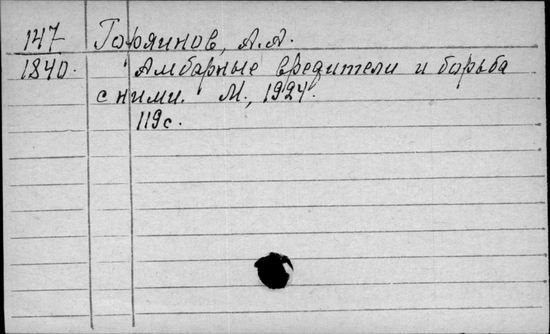 147 Горяинов, А.А.
1840. Амбарные вредители и борьба
с ними. М., 1924.
119с.